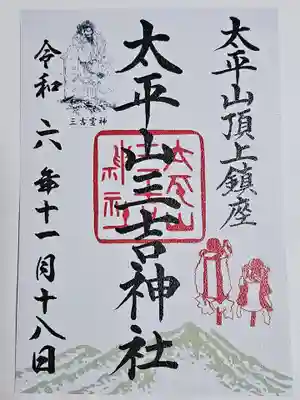 太平山頂上鎮座
太平山三吉神社
三吉霊神
令和六年十一月十八日